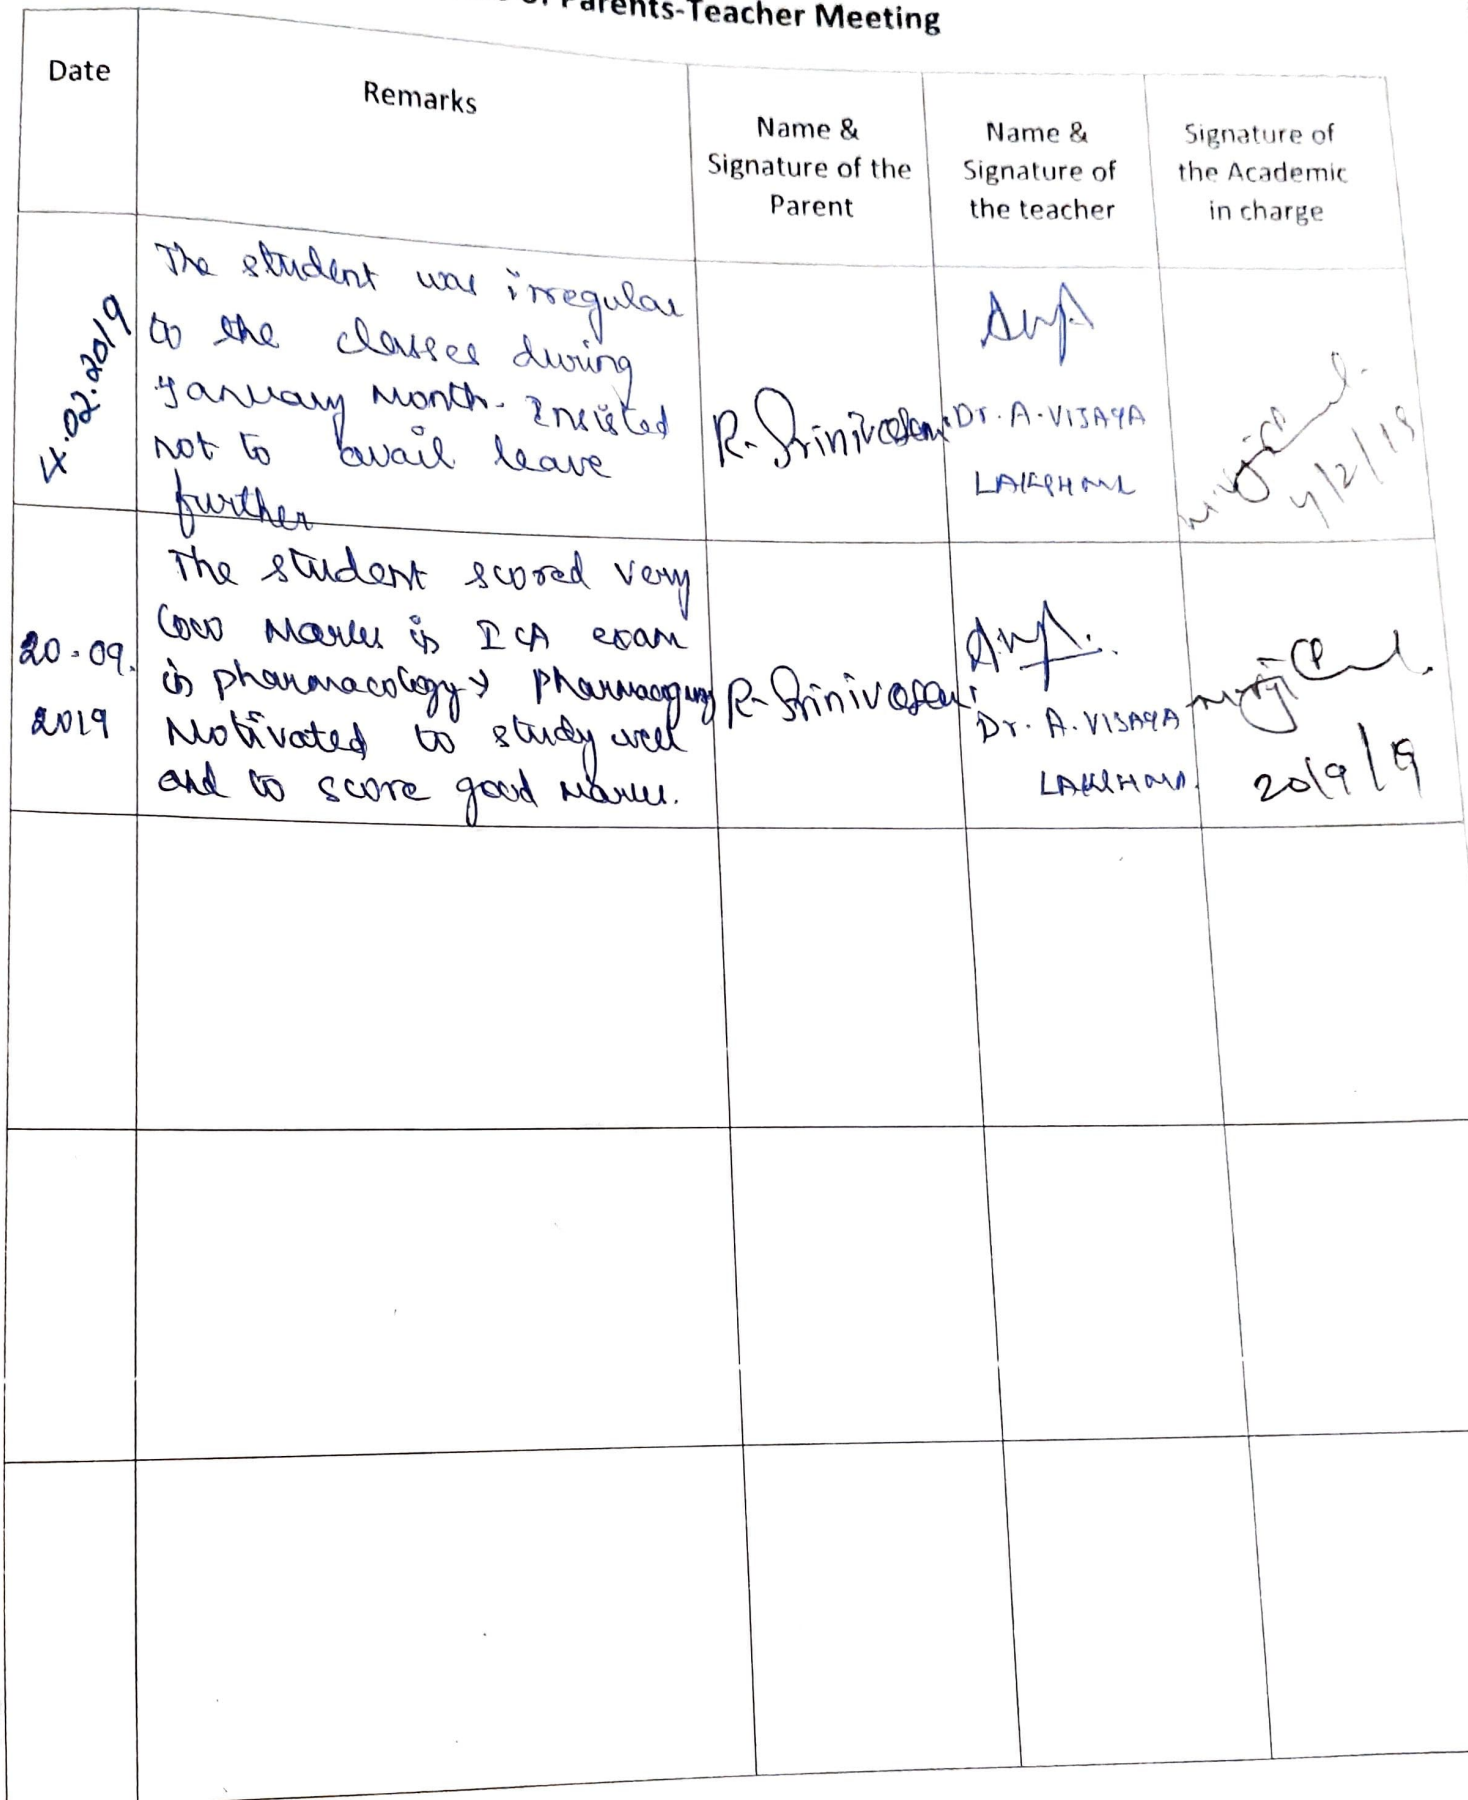 Parents-Teacher Meeting
Date
Remarks
Name &
Signature of the
Parent
Name &
Signature of
the teacher
Signature of
the Academic
in charge
4.02.2019
The student was irregular
to the classes during
January Month. Insisted
not to avail leave
further
R. Srinivasan
Dr. A. VIJAYA
LAKSHMI
4/2/19
20.09.
2019
The student scored very
low Marks in ICA exam
in pharmacology &
Motivated to study well
and to score good Marks.
R. Srinivasan
Dr. A. VIJAYA
LAKSHMI
20/9/19